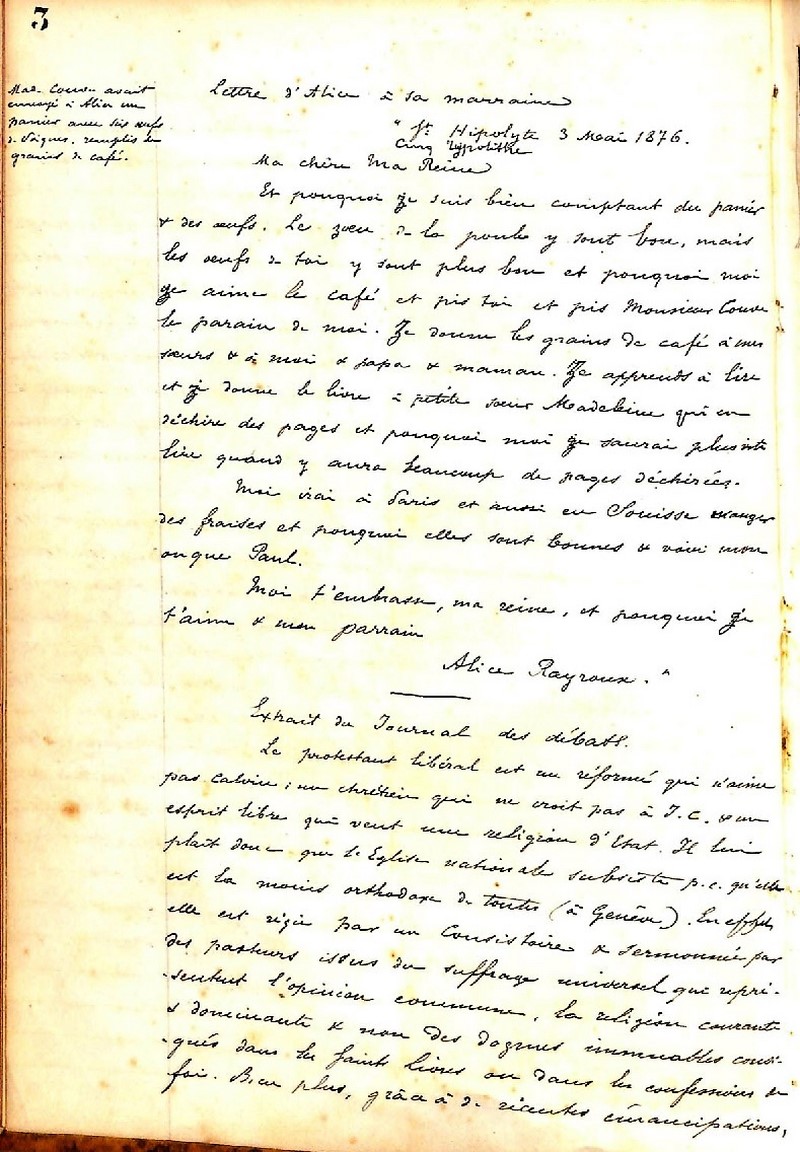 3
Mad. Couve avait
envoyé à Alice un
panier avec six œufs
de Pâques, remplis de
grains de café.
Lettre d'Alice à sa marraine
" St Hipolyte 3 Mai 1876.
Cinq Hypolithe
Ma chère Ma Reine
Et pourquoi Ze suis bien comptant du panier
& des œufs. Le zœu de la poule y sont bon, mais
les œufs de toi y sont plus bon et pourquoi moi
ze aime le café et pis toi et pis Monsieur Couve
le parain de moi. Ze donne les grains de café à mes
sœurs & à moi & papa & maman. Ze apprends à lire
et ze donne le livre à petite sœur Madeleine qui en
déchire des pages et pourquoi moi ze saurai plus vite
lire quand y aura beaucoup de pages déchirées.
Moi irai à Paris et aussi en Souisse manger
des fraises et pourquoi elles sont bonnes & voir mon
onque Paul.
Moi t'embrasse, ma reine, et pourquoi ze
t'aime & mon parrain
Alice Rayroux. "
Extrait du Journal des débats.
Le protestant libéral est un réformé qui n'aime
pas Calvin ; un chrétien qui ne croit pas à J. C. & un
esprit libre qui veut une religion d'Etat. Il lui
plaît donc que l'Eglise nationale subsiste p.c. qu'elle
est la moins orthodoxe de toutes (à Genève). En effet
elle est régie par un Consistoire & sermonnée par
des pasteurs issus du suffrage universel qui repré-
-sentent l'opinion commune, la religion courante
& dominante & non des dogmes immuables consi-
-gnés dans les saints livres ou dans les confessions de
foi. Bien plus, grâce à de récentes émancipations,